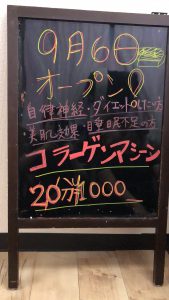 9月6日
オープン♡
自律神経・ダイエットしたい方
・美肌効果・睡眠不足の方
コラーゲンマシーン
20分1000